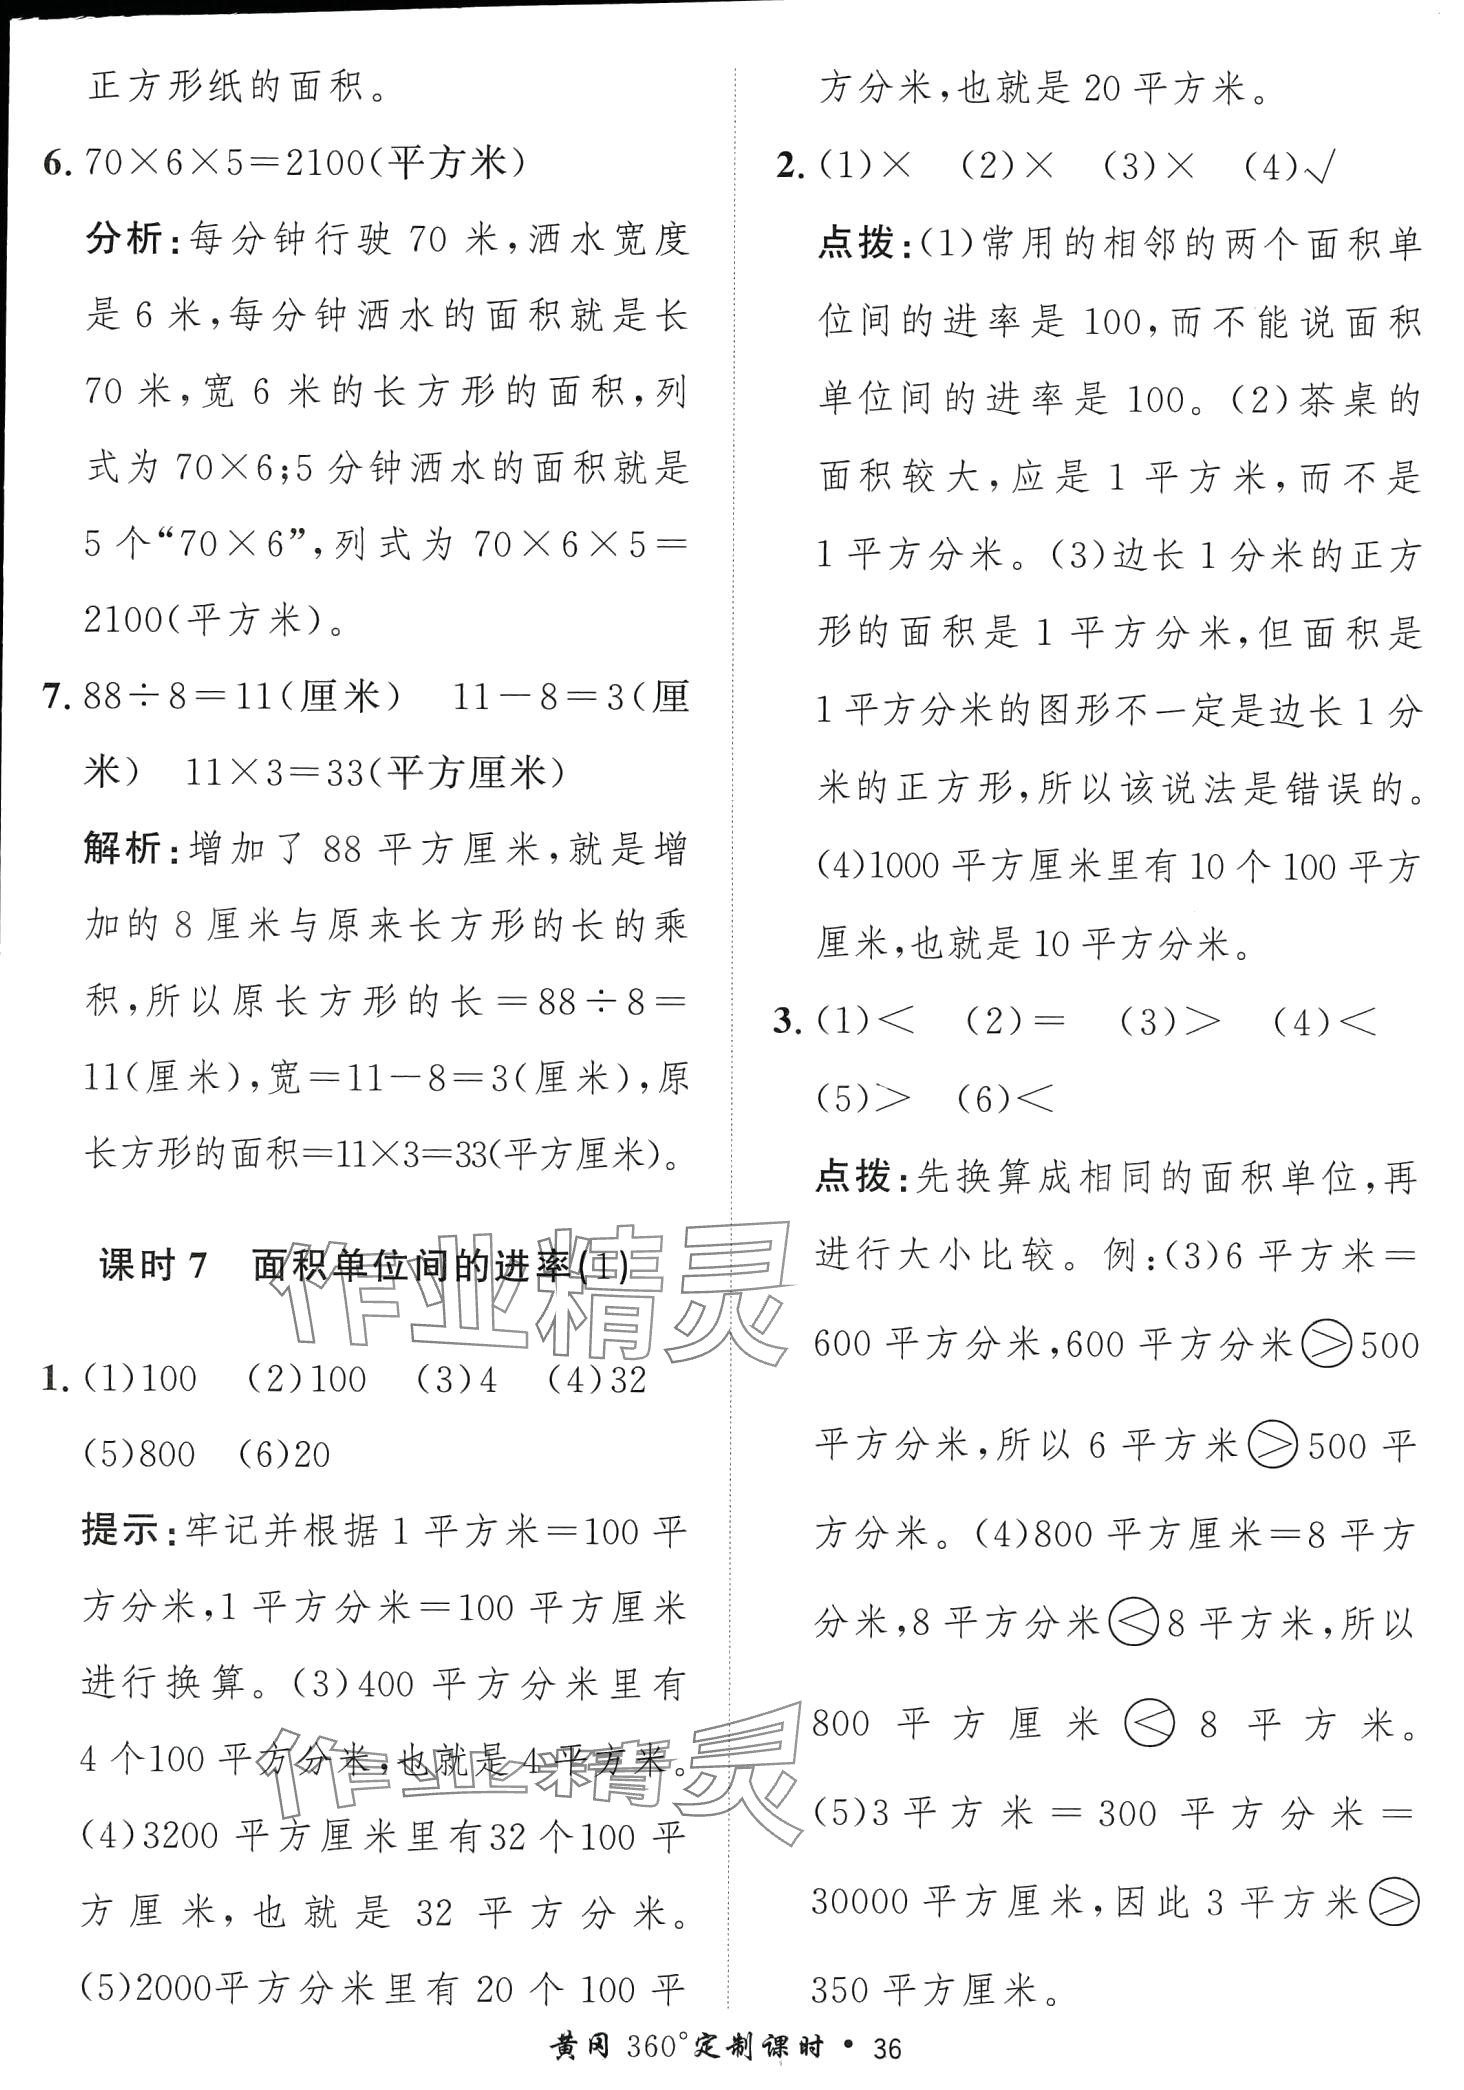 正方形纸的面积。
6. 70×6×5=2100(平方米)
分析:每分钟行驶 70 米,洒水宽度
是 6 米,每分钟洒水的面积就是长
70 米,宽 6 米的长方形的面积,列
式为 70×6;5 分钟洒水的面积就是
5 个“70×6”,列式为 70×6×5=
2100(平方米)。
7. 88÷8=11(厘米) 11-8=3(厘
米) 11×3=33(平方厘米)
解析:增加了 88 平方厘米,就是增
加的 8 厘米与原来长方形的长的乘
积,所以原长方形的长=88÷8=
11(厘米),宽=11-8=3(厘米),原
长方形的面积=11×3=33(平方厘米)。
课时 7 面积单位间的进率(1)
1. (1)100 (2)100 (3)4 (4)32
(5)800 (6)20
提示:牢记并根据 1 平方米=100 平
方分米,1 平方分米=100 平方厘米
进行换算。(3)400 平方分米里有
4 个100 平方分米,也就是 4 平方米。
(4)3200 平方厘米里有32 个100 平
方厘米,也就是 32 平方分米。
(5)2000平方分米里有 20 个 100 平
方分米,也就是 20 平方米。
2. (1)× (2)× (3)× (4)√
点拨:(1)常用的相邻的两个面积单
位间的进率是 100,而不能说面积
单位间的进率是 100。(2)茶桌的
面积较大,应是 1 平方米,而不是
1 平方分米。(3)边长 1 分米的正方
形的面积是 1 平方分米,但面积是
1 平方分米的图形不一定是边长 1 分
米的正方形,所以该说法是错误的。
(4)1000 平方厘米里有 10 个 100 平方
厘米,也就是 10 平方分米。
3. (1)< (2)= (3)> (4)<
(5)> (6)<
点拨:先换算成相同的面积单位,再
进行大小比较。例:(3)6 平方米=
600 平方分米,600 平方分米>500
平方分米,所以 6 平方米>500 平
方分米。(4)800 平方厘米=8 平方
分米,8 平方分米<8 平方米,所以
800 平方厘米<8 平方米。
(5)3 平方米=300 平方分米=
30000 平方厘米,因此 3 平方米>
350 平方厘米。
作业精灵
作业精灵
黄冈 360°定制课时 • 36